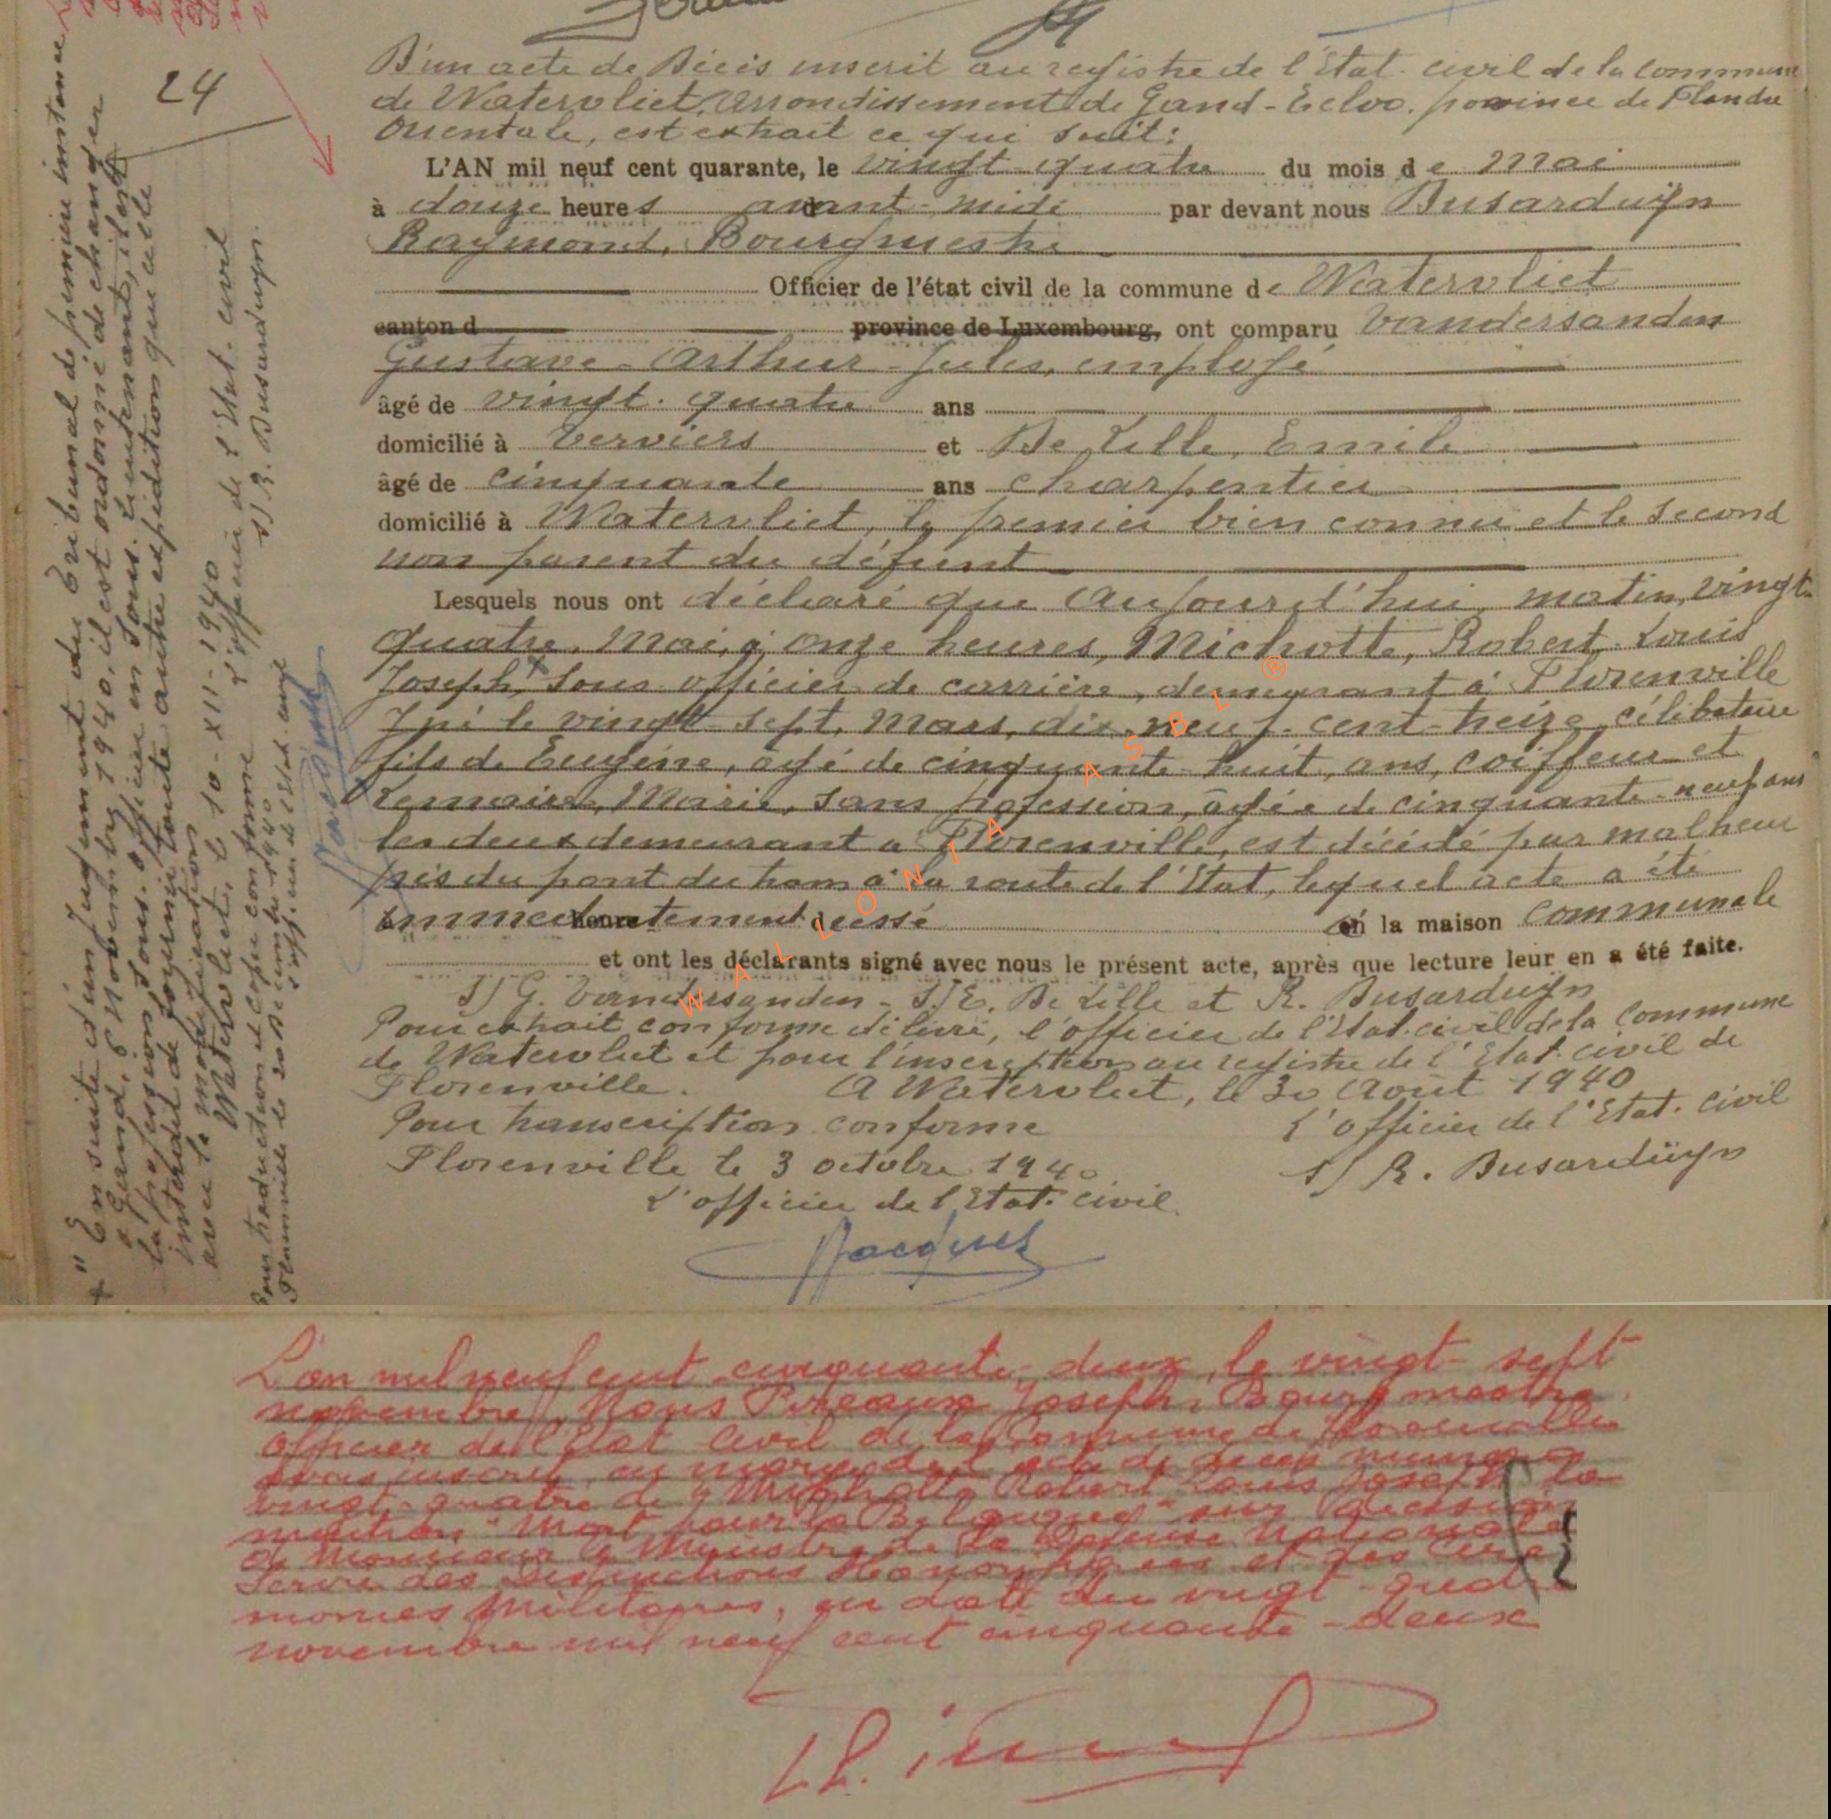 24
D'un acte de Décès inscrit au registre de l'Etat-civil de la commune
de Watervliet, Arrondissement de Gand-Eeloo. province de Flandre
Orientale, est extrait ce qui suit:
L'AN mil neuf cent quarante, le vingt quatre du mois de Mai
à douze heures avant-midi par devant nous Busarduijn
Raymond, Bourgmestre
Officier de l'état civil de la commune de Watervliet
canton d province de Luxembourg, ont comparu Vandersanden
Gustave-Arthur-Jules, employé
âgé de vingt-quatre ans
domicilié à Verviers et De Lille, Emile
âgé de cinquante ans charpentier
domicilié à Watervliet, le premier bien connu et le second
non parent du défunt
Lesquels nous ont déclaré que Aujourd'hui, matin, vingt-
quatre, Mai, à onze heures, Michotte, Robert-Louis
Joseph, x sous-officier de carrière, demeurant à Florenville
y né le vingt-sept, Mars, dix-neuf-cent-treize, célibataire
fils de Eugène, âgé de cinquante-huit, ans, coiffeur et
Lemaire, Marie, sans profession, âgée de cinquante-neuf ans
les deux demeurant à Florenville, est décédé par malheur
près du pont du tram à la route de l'Etat, lequel acte a été
immédiatement dressé heure en la maison communale
et ont les déclarants signé avec nous le présent acte, après que lecture leur en a été faite.
S/ G. Vandersanden - S/ E. De Lille et R. Busarduijn
Pour extrait conforme délivré, l'officier de l'Etat-civil de la commune
de Watervliet et pour l'inscription au registre de l'Etat-civil de
Florenville. A Watervliet, le 30 Août 1940
Pour transcription conforme L'officier de l'Etat-civil
Florenville le 3 octobre 1940 S/ R. Busarduijn
L'officier de l'Etat-civil.
Jacques
x " En suite d'un jugement du tribunal de première instance
à Gand, 6 Novembre 1940, il est ordonné de changer
la profession sous-officier en sous-lieutenant, il est
interdit de fournir toute autre expédition que celle
avec la modification
Watervliet, le 10-XII-1940
L'officier de l'Etat-civil
S/ R. Busarduijn.
Pour traduction et copie conforme
Florenville le 20 Décembre 1940
L'off. de l'Etat-civil
Jacques
WALLONIA ASBL ®
L'an mil neuf cent cinquante-deux, le vingt-sept
novembre, Nous Pireaux Joseph, Bourgmestre
officier de l'Etat Civil de la Commune de Florenville
avons inscrit en marge de l'acte de décès numéro
vingt-quatre de Michotte Robert Louis Joseph la
mention "Mort pour la Belgique" sur décision
de Monsieur le Ministre de la Défense Nationale
Service des Distinctions Honorifiques et des Céré
monies Militaires, en date du vingt-quatre
novembre mil neuf cent cinquante-deux